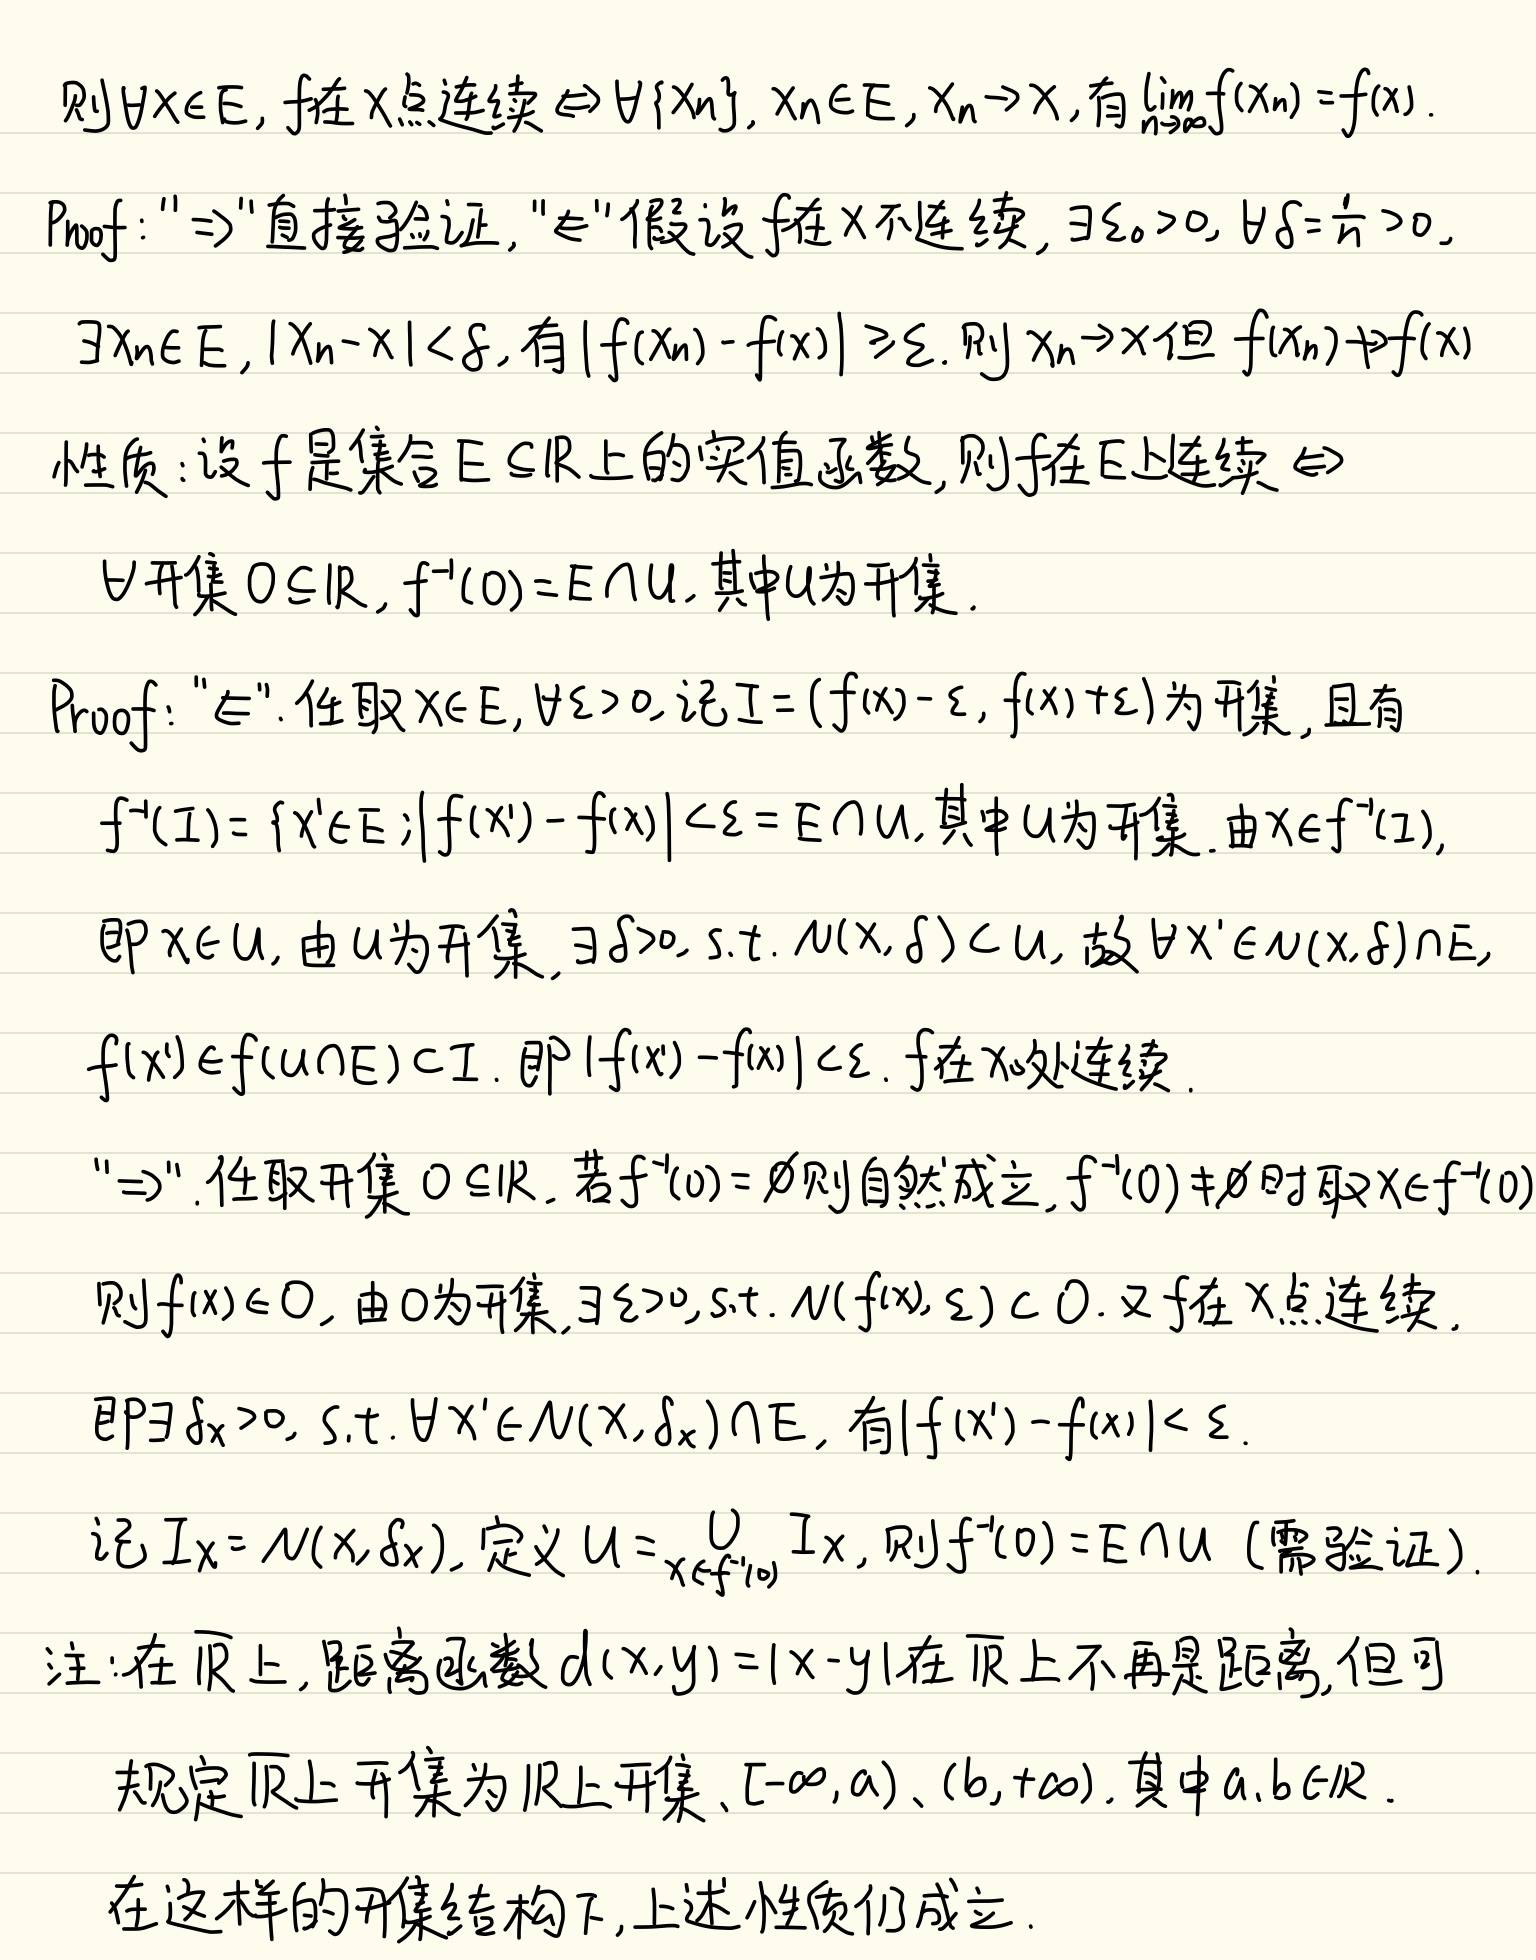 则∀x∈E, f在x点连续⇔∀{xn}, xn∈E, xn→x, 有lim n→∞ f(xn)=f(x).
Proof: "⇒"直接验证, "⇐"假设f在x不连续, ∃ε₀>0, ∀δ=1/n>0,
∃xn∈E, |xn-x|<δ, 有|f(xn)-f(x)|≥ε. 则xn→x但f(xn)↛f(x)
性质: 设f是集合E⊆ℝ上的实值函数, 则f在E上连续⇔
∀开集O⊆ℝ, f⁻¹(O)=E∩U, 其中U为开集.
Proof: "⇐". 任取x∈E, ∀ε>0, 记I=(f(x)-ε, f(x)+ε)为开集, 且有
f⁻¹(I)={x'∈E;|f(x')-f(x)|<ε=E∩U, 其中U为开集. 由x∈f⁻¹(I),
即x∈U, 由U为开集, ∃δ>0, s.t. N(x,δ)⊂U, 故∀x'∈N(x,δ)∩E,
f(x')∈f(U∩E)⊂I. 即|f(x')-f(x)|<ε. f在x₀处连续.
"⇒". 任取开集O⊆ℝ, 若f⁻¹(O)=∅则自然成立, f⁻¹(O)≠∅时取x∈f⁻¹(O)
则f(x)∈O, 由O为开集, ∃ε>0, s.t. N(f(x),ε)⊂O. 又f在x点连续,
即∃δₓ>0, s.t. ∀x'∈N(x,δₓ)∩E, 有|f(x')-f(x)|<ε.
记Iₓ=N(x,δₓ), 定义U=∪ x∈f⁻¹(O) Iₓ, 则f⁻¹(O)=E∩U (需验证).
注: 在ℝ̅上, 距离函数d(x,y)=|x-y|在ℝ̅上不再是距离, 但可
规定ℝ̅上开集为ℝ上开集、[-∞,a)、(b,+∞). 其中a,b∈ℝ.
在这样的开集结构下, 上述性质仍成立.